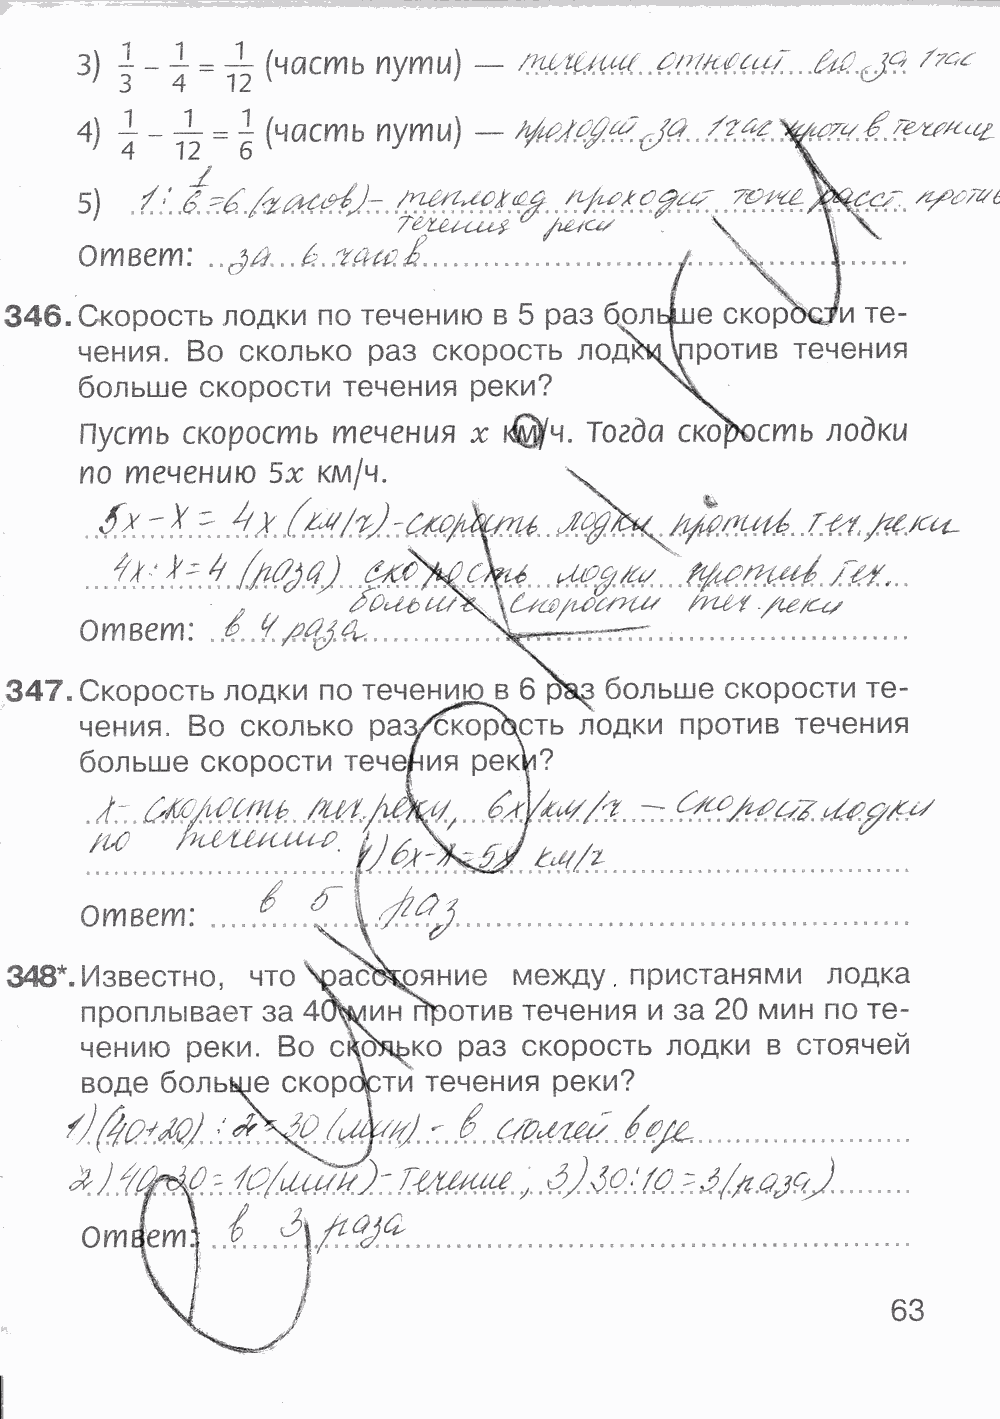 3) 1/3 − 1/4 = 1/12 (часть пути) — течение относит его за 1 час
4) 1/4 − 1/12 = 1/6 (часть пути) — проходит за 1 час против течения
5) 1 : 1/6 = 6 (часов) – теплоход проходит тоже расст. против
течения реки
Ответ: за 6 часов
346. Скорость лодки по течению в 5 раз больше скорости те-
чения. Во сколько раз скорость лодки против течения
больше скорости течения реки?
Пусть скорость течения x км/ч. Тогда скорость лодки
по течению 5x км/ч.
5x – x = 4x (км/ч) – скорость лодки против теч. реки
4x : x = 4 (раза) скорость лодки против теч.
больше скорости теч. реки
Ответ: в 4 раза
347. Скорость лодки по течению в 6 раз больше скорости те-
чения. Во сколько раз скорость лодки против течения
больше скорости течения реки?
x – скорость теч. реки, 6x/км/ч – скорость лодки
по течению. 1) 6x – x = 5x км/ч
Ответ: в 5 раз
348*. Известно, что расстояние между пристанями лодка
проплывает за 40 мин против течения и за 20 мин по те-
чению реки. Во сколько раз скорость лодки в стоячей
воде больше скорости течения реки?
1) (40+20) : 2 = 30 (мин) – в стоячей воде
2) 40–30 = 10 (мин) – течение ; 3) 30:10 = 3 (раза)
Ответ: в 3 раза
63